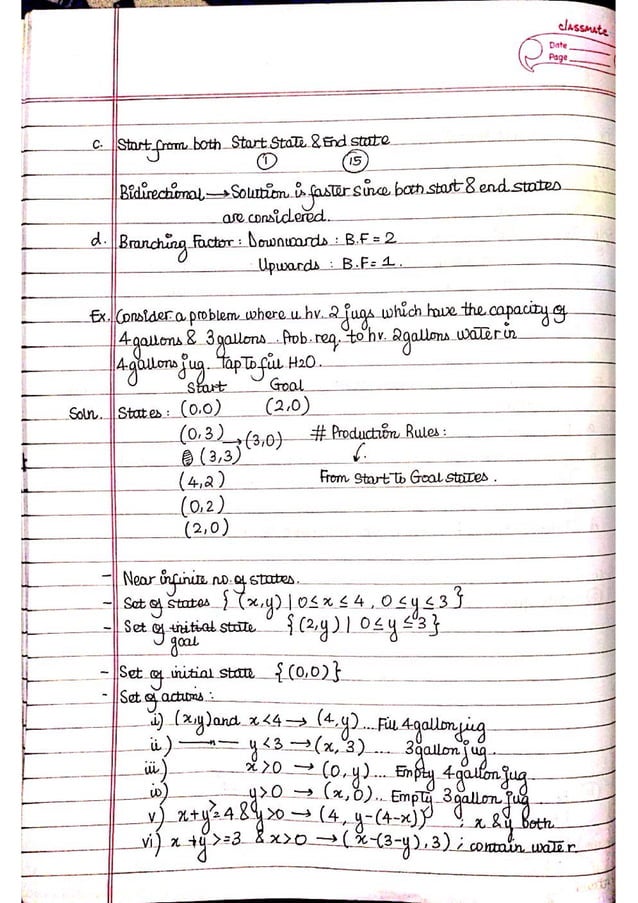 classmate
Date
Page
c. Start from both Start State & End state
1 15
Bidirectional → Solution is faster since both start & end states
are considered.
d. Branching Factor : Downwards : B.F = 2
Upwards : B.F = 1.
Ex. Consider a problem where u hv. 2 jugs which have the capacity of
4 gallons & 3 gallons. Prob. req. to hv. 2 gallons water in
4 gallons jug. Tap To fill H2O.
Start Goal
Soln. States : (0,0) (2,0)
(0,3) → (3,0) # Production Rules :
(3,3)
(4,2) From Start To Goal states.
(0,2)
(2,0)
- Near infinite no. of states.
- Set of states { (x,y) | 0 ≤ x ≤ 4, 0 ≤ y ≤ 3 }
- Set of initial state {(2,y) | 0 ≤ y ≤ 3}
goal
- Set of initial state {(0,0)}
- Set of actions :
i) (x,y) and x < 4 → (4,y) ... Fill 4 gallon jug
ii) —"— y < 3 → (x, 3) ... 3 gallon jug.
iii) x > 0 → (0,y) ... Empty 4 gallon jug.
iv) y > 0 → (x,0) .. Empty 3 gallon jug
v) x+y >= 4 & y > 0 → (4, y-(4-x)) ; x & y both
vi) x + y >= 3 & x > 0 → (x-(3-y), 3) ; contain water.